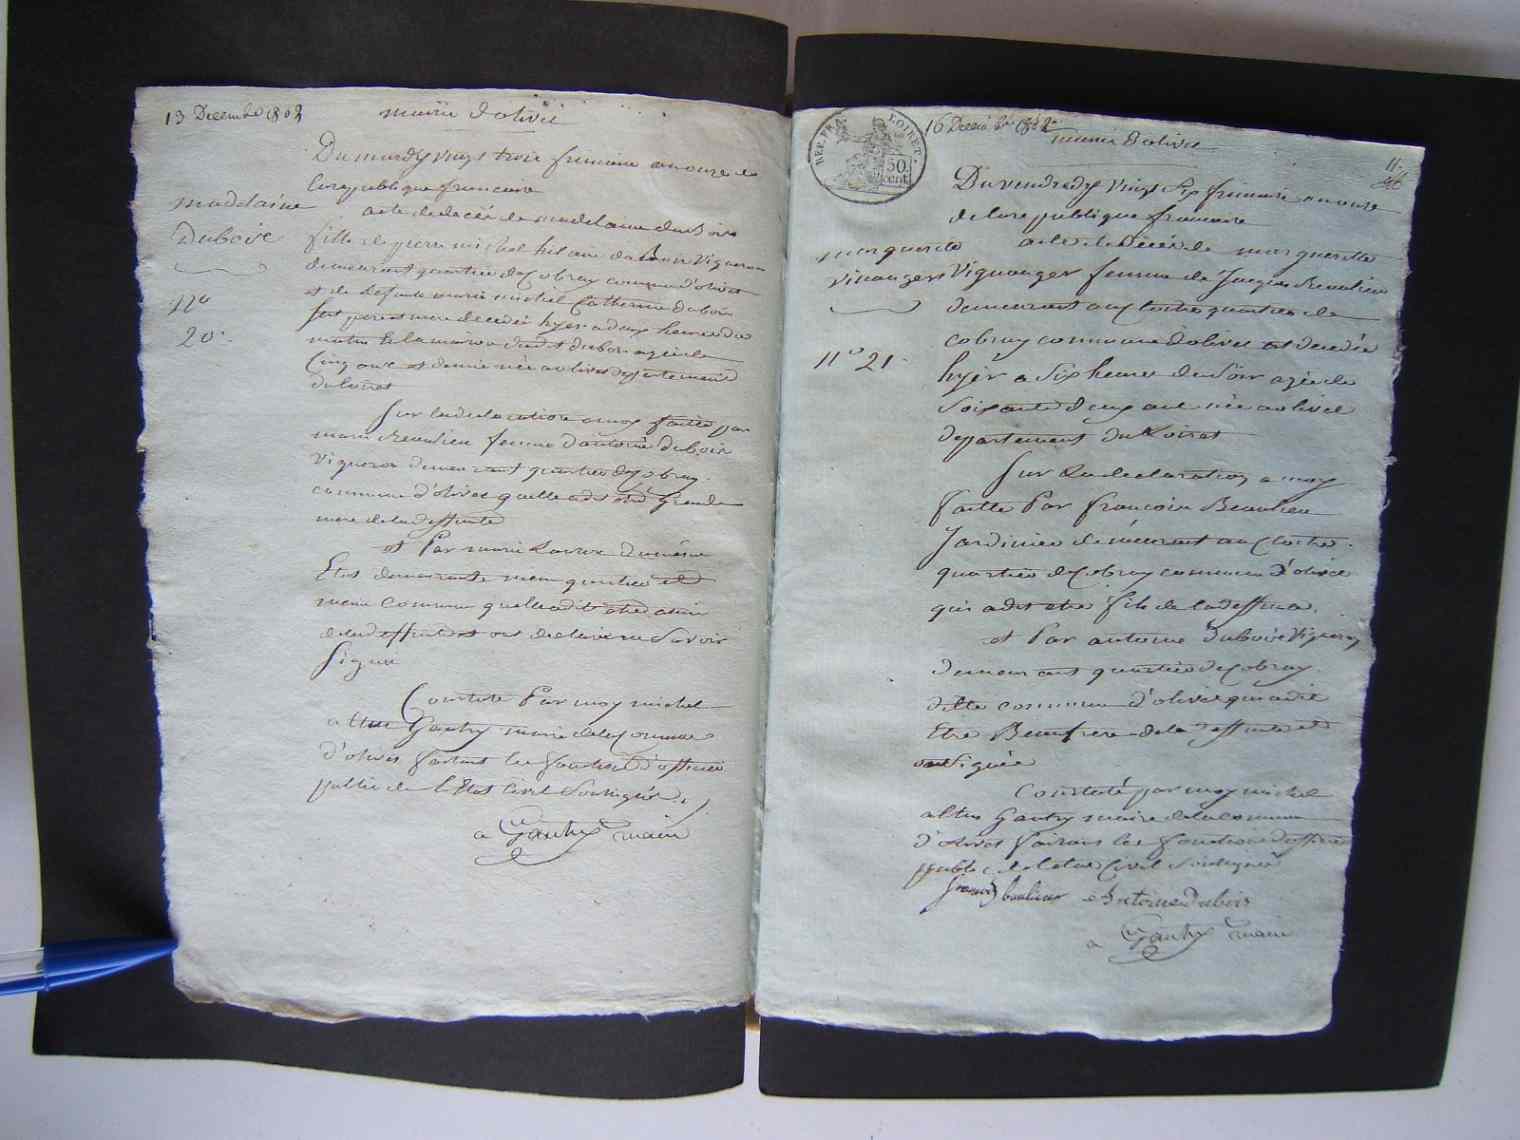 13 Decembre 1802
mairie d'olivet
Du mardy vingt trois frimaire an onze de
la republique francaise
madelaine
Duboise
n°
20.
acte de decès de madelaine duBois
fille de pierre michel hilaire duBois Vigneron
demeurant quartier de Cobray commune d'olivet
et de defunte marie michel Catherine dubois
ses pere et mere decedée hyer a deux heures du
matin de la maison dudit dubois agée de
Cinq ans et demie née a olivet departement
du loiret
Sur la declaration a moy faitte par
marie Beaulieu femme d'antoine dubois
Vigneron demeurant quartier de Cobray
commune d'olivet quelle a dit etre grande
mere de la deffunte
et Par marie du même
Etat demeurante meme quartier et
meme commune quelle a dit etre amie
de la deffunte et ont declaré ne Savoir
Signer
Constaté Par moy michel
altin Gautry maire de la Commune
d'olivet faisant les fonctions d'officier
public de l'Etat Civil Soussigné
a Gautry maire
16 Decembre 1802
mairie d'olivet
REP. FRA. LOIRET.
50 cent.
11.
Du vendredy vingt Six frimaire an onze
de la republique francaise
marguerite
vinauger
n° 21.
acte de Decès de marguerite
Vignauger femme de Jacques Beaulieu
demeurant aux Clotres quartier de
cobray commune d'olivet et decedée
hyèr a Six heures du Soir agée de
Soixante deux ans née a olivet
departement du Loiret
Sur La declaration a moy
faitte Par francois Beaulieu
Jardinier demeurant aux Clotres
quartier de Cobray commune d'olivet
qui a dit etre fils de la deffunte.
et Par antoine duboise Vigneron
demeurant quartier de Cobray
ditte commune d'olivet qui a dit
Etre Beaufrere de la deffunte et
ont Signée
Constaté par moy michel
altin Gautry maire de la commune
d'olivet faisant les fonctions d'officier
public de l'etat Civil Soussigné
francois beaulieux Antoine Dubois
a Gautry maire